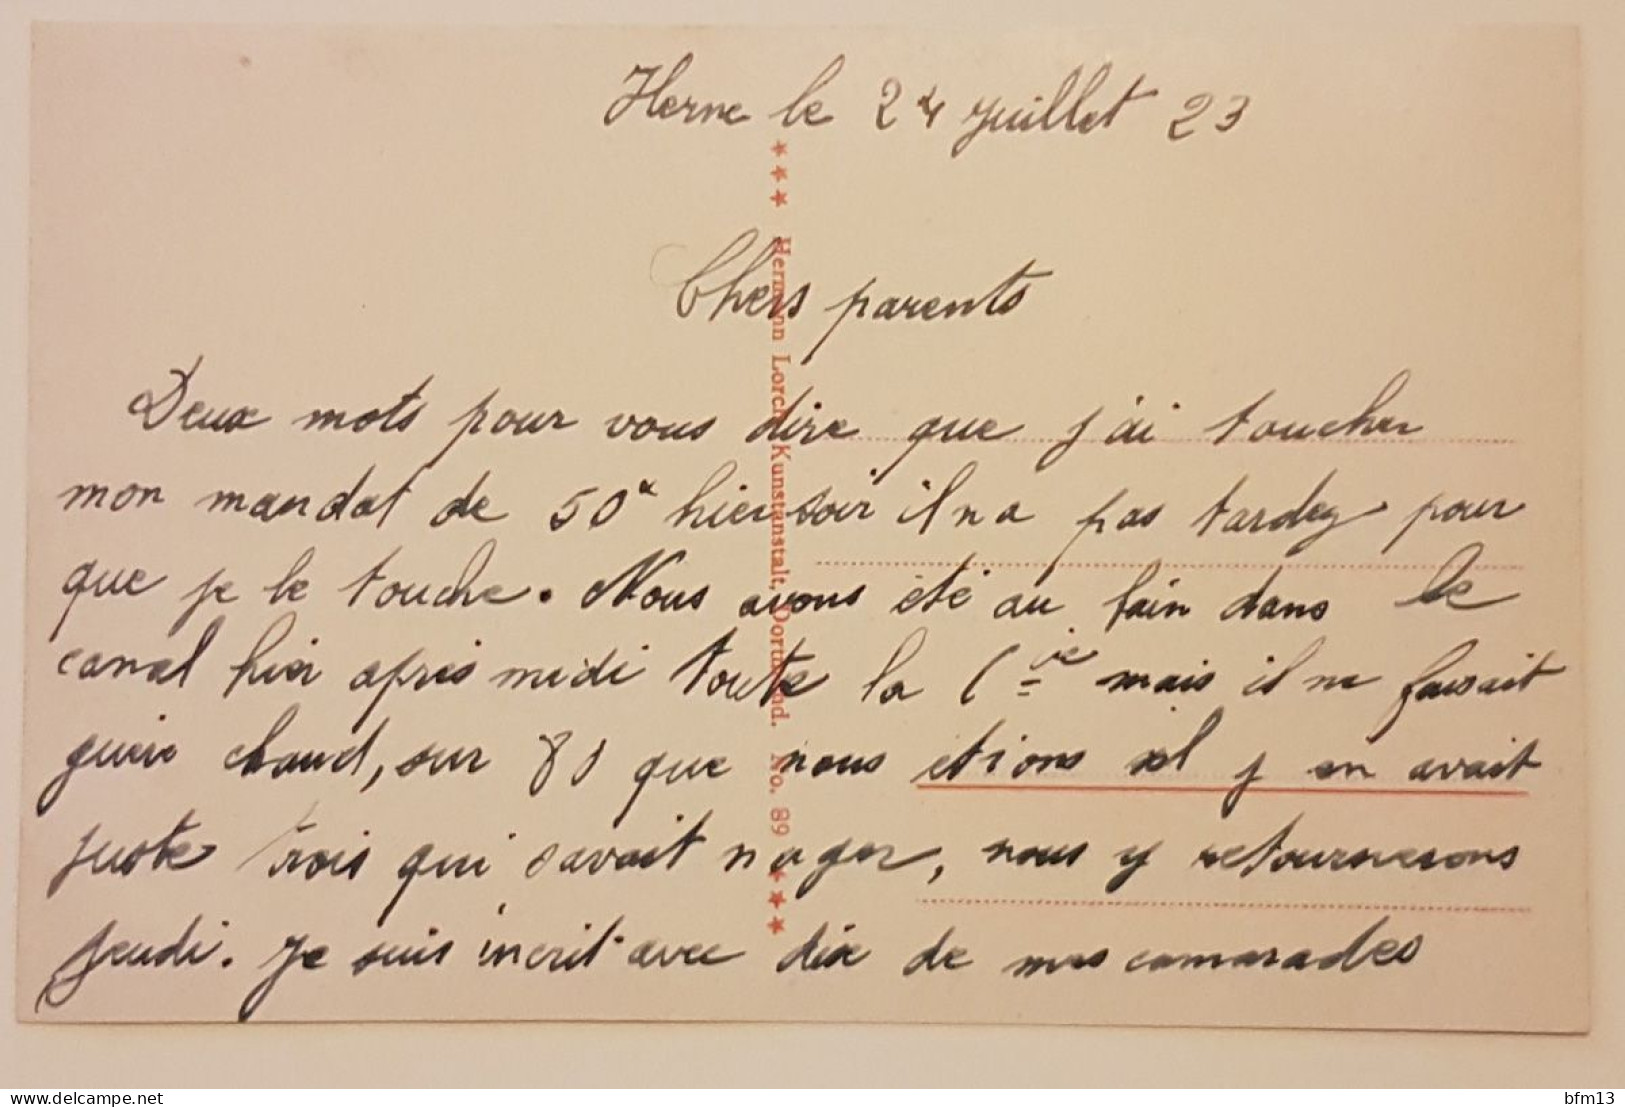 Herne le 24 Juillet 23
Chers parents
Deux mots pour vous dire que j'ai toucher
mon mandat de 50 hier soir il n a pas tardez pour
que je le touche. Nous avons été au bain dans le
canal hier après midi toute la Cie mais il ne faisait
guère chaud, sur 80 que nous étions il y en avait
juste trois qui savait nager, nous y retournerons
jeudi. Je suis incrit avec dix de mes camarades
*** Hermann Lorch, Kunstanstalt, Dortmund. No. 89 ***
delcampe.net
bfm13